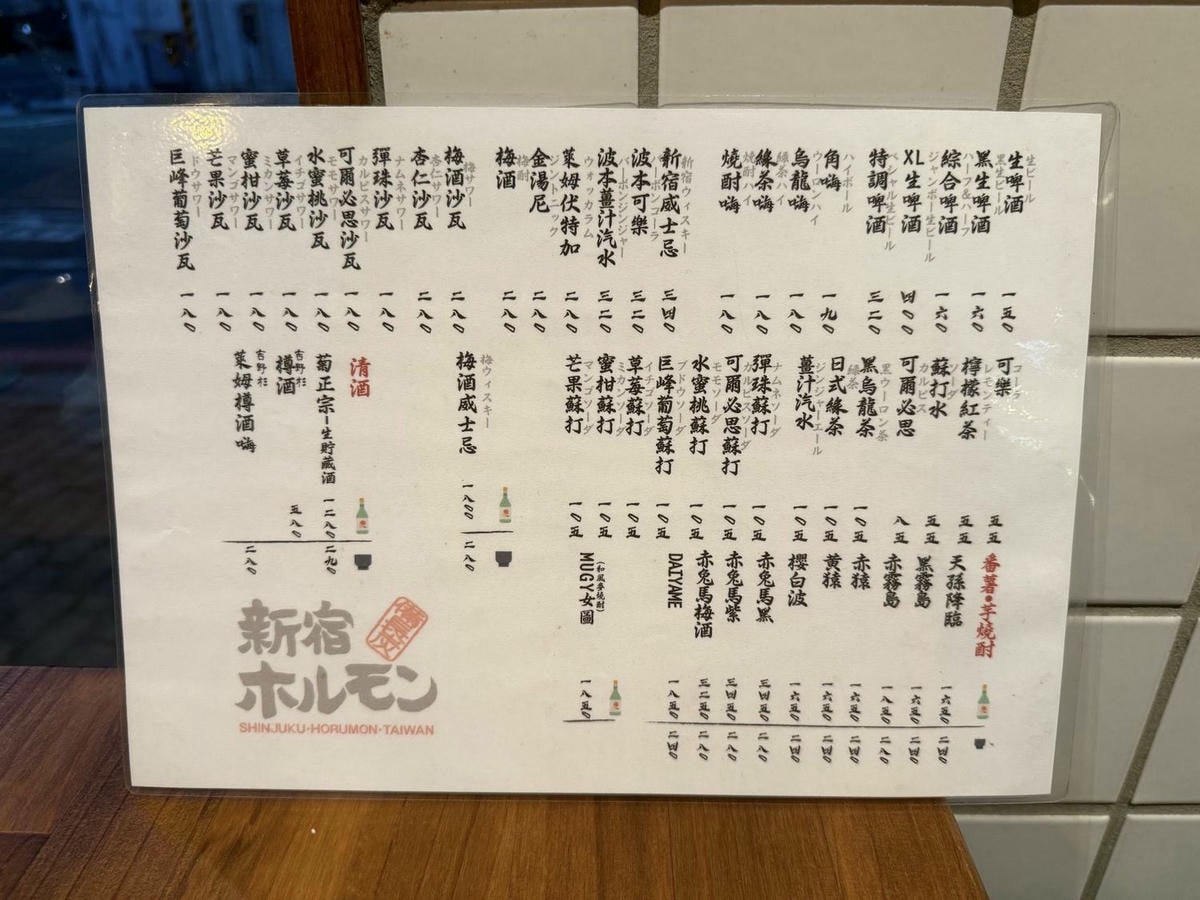 生ビール
生啤酒
一五〇
黒生ビール
黑生啤酒
一六〇
ハーフ&ハーフ
綜合啤酒
一六〇
ジャンボ生ビール
XL生啤酒
四〇〇
スペシャル生ビール
特調啤酒
三二〇
ハイボール
角嗨
一九〇
ウーロンハイ
烏龍嗨
一八〇
緑茶ハイ
綠茶嗨
一八〇
焼酎ハイ
燒酎嗨
一八〇
新宿ウィスキー
新宿威士忌
三四〇
バーボンコーラ
波本可樂
三二〇
バーボンジンジャー
波本薑汁汽水
三二〇
ウォッカラム
萊姆伏特加
二八〇
ジントニック
金湯尼
二八〇
梅酎
梅酒
二八〇
梅サワー
梅酒沙瓦
二八〇
杏仁サワー
杏仁沙瓦
二八〇
ナムネサワー
彈珠沙瓦
一八〇
カルピスサワー
可爾必思沙瓦
一八〇
モモサワー
水蜜桃沙瓦
一八〇
イチゴサワー
草莓沙瓦
一八〇
ミカンサワー
蜜柑沙瓦
一八〇
マンゴサワー
芒果沙瓦
一八〇
ドウサワー
巨峰葡萄沙瓦
一八〇
コーラ
可樂
五五
レモンティー
檸檬紅茶
五五
ソーダ
蘇打水
五五
カルピス
可爾必思
八五
黒ウーロン茶
黑烏龍茶
一〇五
緑茶
日式綠茶
一〇五
ジンジャーエール
薑汁汽水
一〇五
ナムネソーダ
彈珠蘇打
一〇五
カルピスソーダ
可爾必思蘇打
一〇五
モモソーダ
水蜜桃蘇打
一〇五
ブドウソーダ
巨峰葡萄蘇打
一〇五
イチゴソーダ
草莓蘇打
一〇五
ミカンソーダ
蜜柑蘇打
一〇五
マンゴソーダ
芒果蘇打
一〇五
梅ウィスキー
梅酒威士忌
一八〇〇
二八〇
清酒
菊正宗ー生貯藏酒
一二八〇
二九〇
吉野杉
樽酒
五八〇
吉野杉
萊姆樽酒嗨
二八〇
番薯・芋燒酎
天孫降臨
一六五〇
二四〇
黑霧島
一六五〇
二四〇
赤霧島
一八五〇
二八〇
赤猿
一六五〇
二四〇
黃猿
一六五〇
二四〇
櫻白波
一六五〇
二四〇
赤兔馬黑
三四五〇
二八〇
赤兔馬紫
三四五〇
二八〇
赤兔馬梅酒
三二五〇
二八〇
DAIYAME
一八五〇
二四〇
(和風麥燒酎)
MUGY女圖
一八五〇
新宿
ホルモン
SHINJUKU·HORUMON·TAIWAN